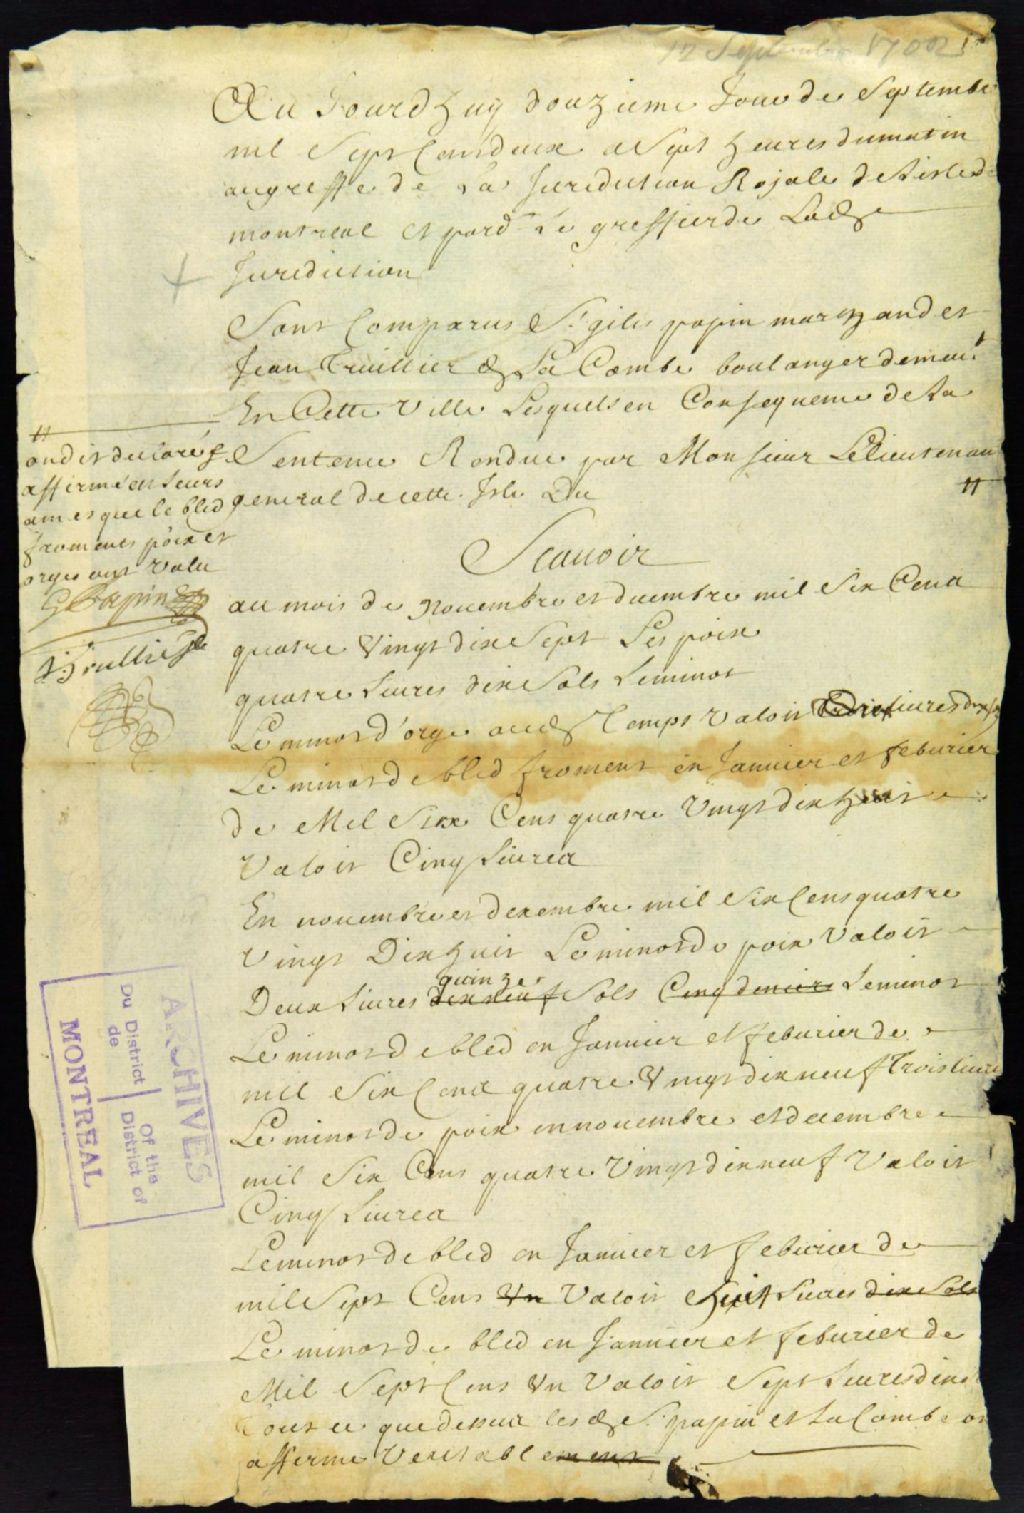 12 Septembre 1702
Au Jourdhuy douzieme Jour de Septembre
mil Sept Cens deux a Sept heures du matin
au greffe de La Juridiction Royale de Lisle d
montreal et pard Le greffier de Lad
Juridiction
Sont Comparus Sr giles papin marchand et
Jean Truillier d La Combe boulanger demeur
En Cette Ville Lesquels en Consequence de La
Sentence Rendue par Monsieur Le lieutenan
general de cette Isle Du
Scauoir
au mois de novembre et decembre mil Six Cens
quatre Vingt dix Sept Les poix
quatre Liures dix Sols Leminot
Le minot d'orge aud Temps Valoit
Le minot de bled froment en Januier et feburier
de Mil Six Cens quatre Vingt dix huit
Valoit Cinq Liures
En nouembre et decembre mil Six Cens quatre
Vingt Dix huit Le minot de poix Valoit
quinze
Deux Liures dix neuf Sols Cinq deniers Leminot
Le minot de bled en Januier et feburier de
mil Six Cens quatre Vingt dix neuf Trois liures
Le minot de poix en nouembre et decembre
mil Six Cens quatre Vingt dix neuf Valoit
Cinq Liures
Le minot de bled en Januier et feburier de
mil Sept Cens Un Valoit huit Liures dix Sols
Le minot de bled en Januier et feburier de
Mil Sept Cens Un Valoit Sept Liures dix
Tout ce que dessus les d Srs papin et La Combe on
afferme Veritablement
ond et declaré
affirmé en Leurs
ames que le bled
froment poix et
orges ont Valu
G Papin
J Trullie
ARCHIVES
Du District | Of the
de | District of
MONTREAL